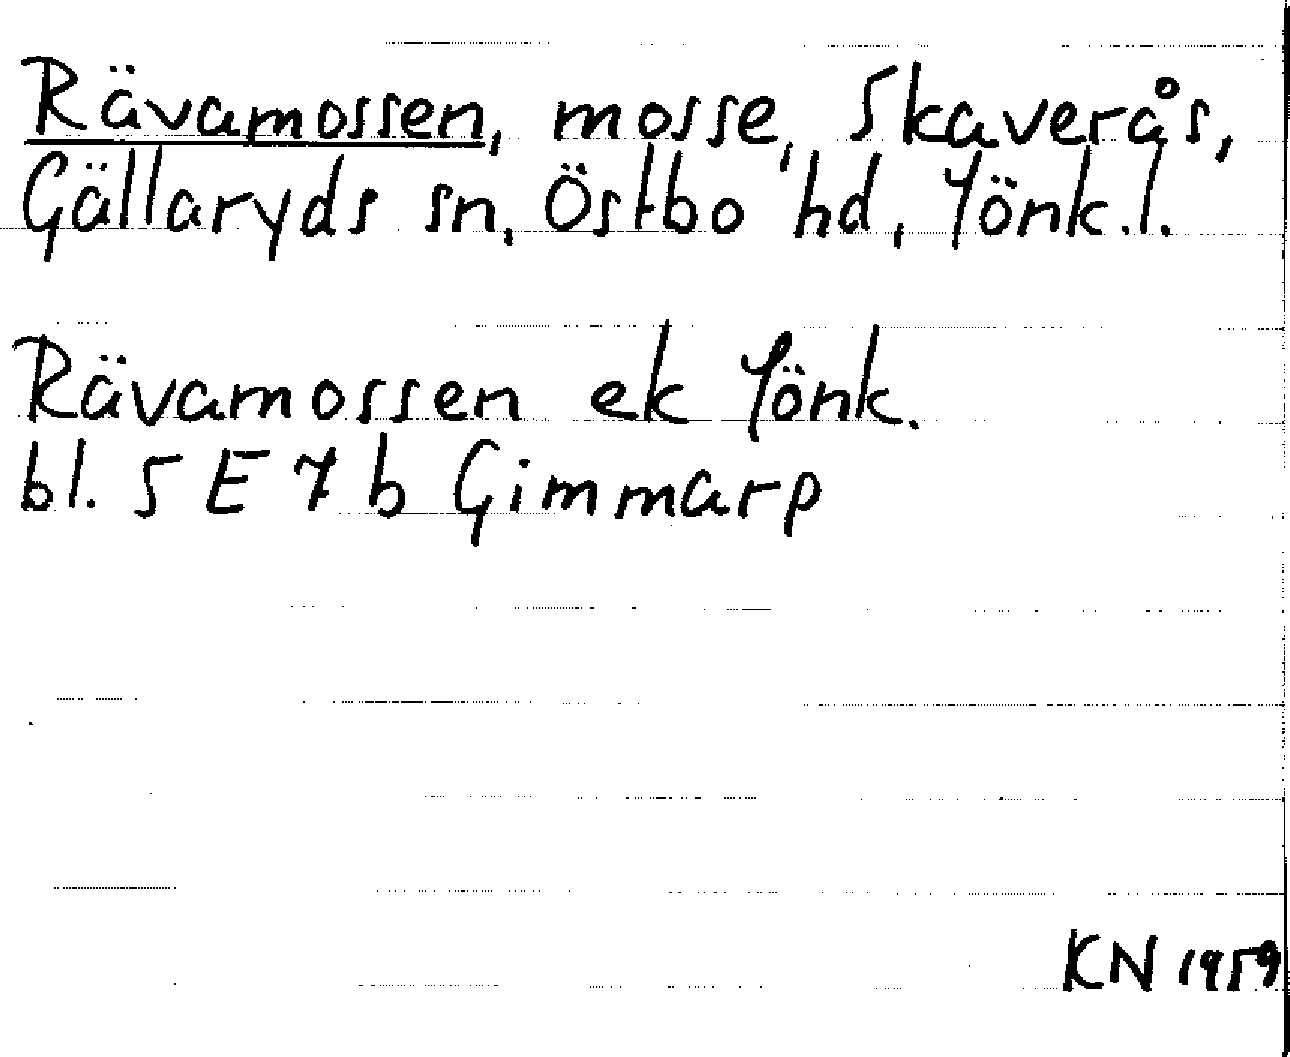 Rävamossen, mosse, Skaverås,
Gällaryds sn, Östbo hd, Jönk.l.
Rävamossen ek Jönk.
bl. 5 E 7 b Gimmarp
KN 1959